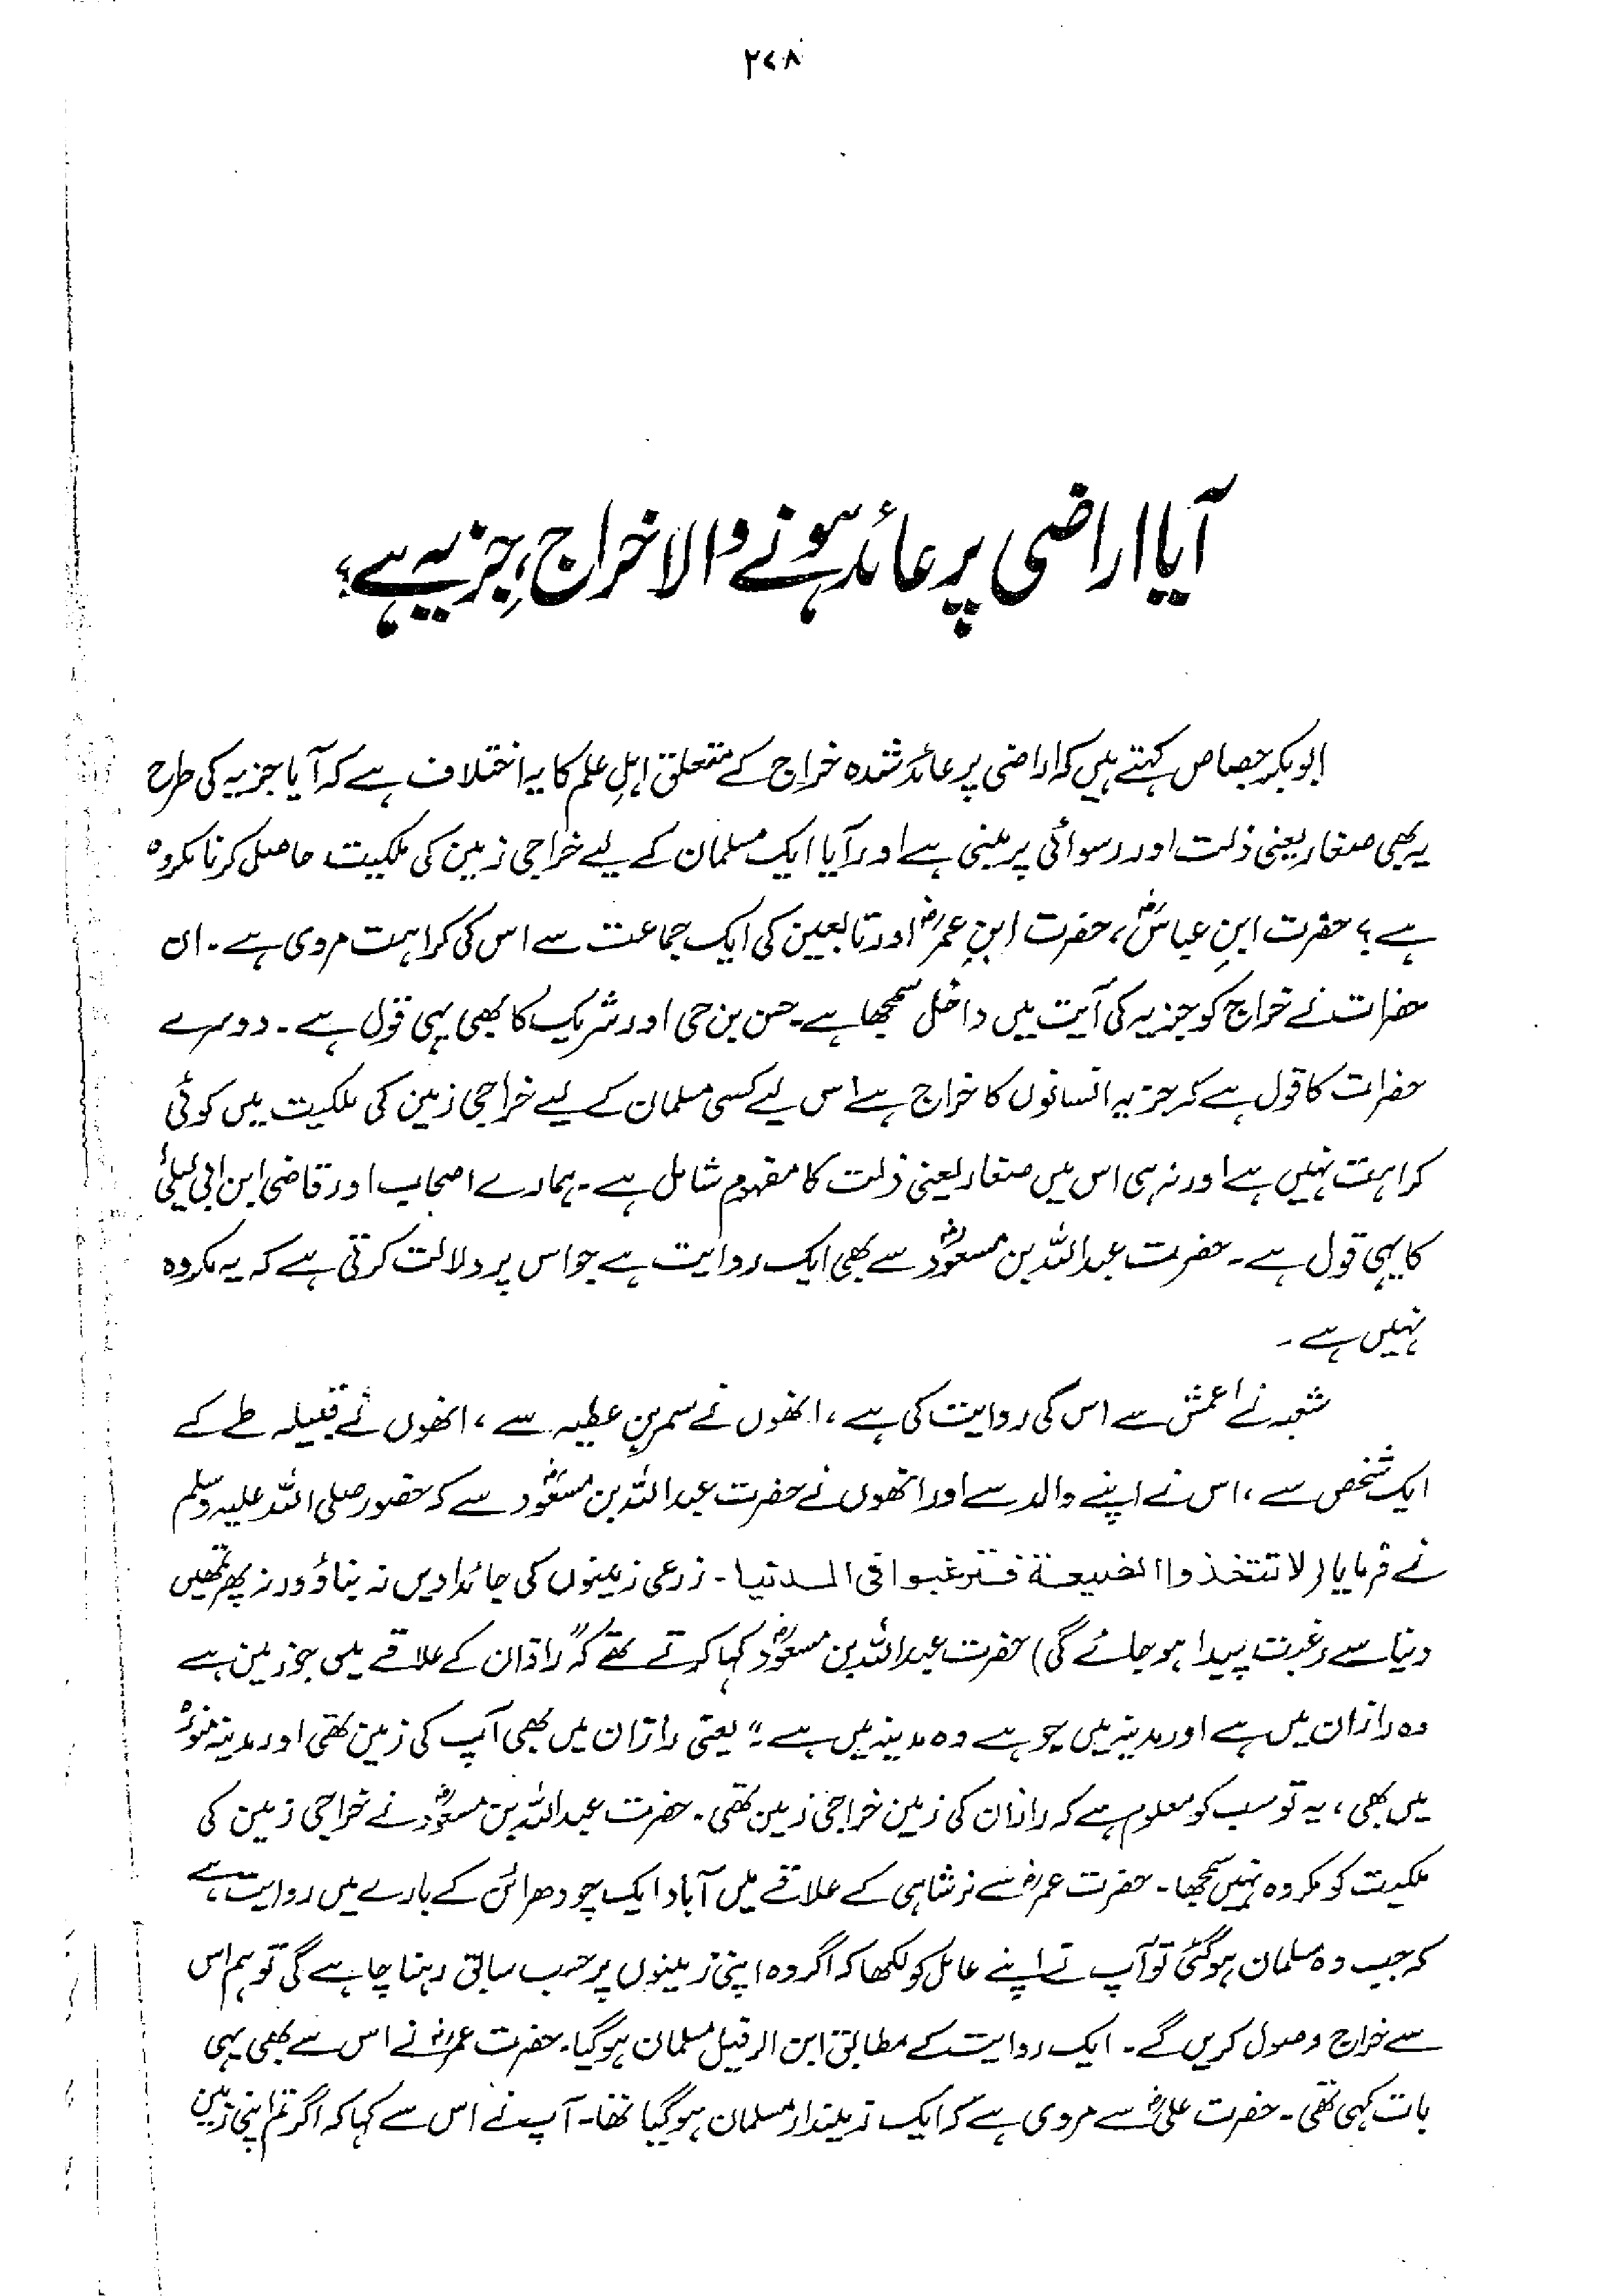 ۲۷۸
آیا اراضی پر عائد ہونے والا خراج، جزیہ ہے؟
ابوبکر جصاص کہتے ہیں کہ اراضی پر عائد شدہ خراج کے متعلق اہلِ علم کا یہ اختلاف ہے کہ آیا جزیہ کی طرح
یہ بھی صغار یعنی ذلت اور رسوائی پر مبنی ہے اور آیا ایک مسلمان کے لیے خراجی زمین کی ملکیت حاصل کرنا مکروہ
ہے؟ حضرت ابنِ عباسؓ، حضرت ابنِ عمرؓ اور تابعین کی ایک جماعت سے اس کی کراہت مروی ہے۔ ان
حضرات نے خراج کو جزیہ کی آیت میں داخل سمجھا ہے۔ حسن بن حی اور شریک کا بھی یہی قول ہے۔ دوسرے
حضرات کا قول ہے کہ جزیہ انسانوں کا خراج ہے اس لیے کسی مسلمان کے لیے خراجی زمین کی ملکیت میں کوئی
کراہت نہیں ہے اور نہ ہی اس میں صغار یعنی ذلت کا مفہوم شامل ہے۔ ہمارے اصحاب اور قاضی ابن ابی لیلیٰ
کا یہی قول ہے۔ حضرت عبداللہ بن مسعودؓ سے بھی ایک روایت ہے جو اس پر دلالت کرتی ہے کہ یہ مکروہ
نہیں ہے۔
شعبہ نے اعمش سے اس کی روایت کی ہے، انھوں نے سمر بن عطیہ سے، انھوں نے قبیلہ طے کے
ایک شخص سے، اس نے اپنے والد سے اور انھوں نے حضرت عبداللہ بن مسعودؓ سے کہ حضور صلی اللہ علیہ وسلم
نے فرمایا (لا تتخذوا الضیعۃ فترغبوا فی الدنیا۔ زرعی زمینوں کی جائدادیں نہ بناؤ ورنہ پھر تمھیں
دنیا سے رغبت پیدا ہو جائے گی) حضرت عبداللہ بن مسعودؓ کہا کرتے تھے کہ "راذان کے علاقے میں جو زمین ہے
وہ راذان میں ہے اور مدینہ میں جو ہے وہ مدینہ میں ہے۔" یعنی راذان میں بھی آپ کی زمین تھی اور مدینہ منورہ
میں بھی، یہ تو سب کو معلوم ہے کہ راذان کی زمین خراجی زمین تھی۔ حضرت عبداللہ بن مسعودؓ نے خراجی زمین کی
ملکیت کو مکروہ نہیں سمجھا۔ حضرت عمرؓ سے نہر شاہی کے علاقے میں آباد ایک چودھرائن کے بارے میں روایت ہے
کہ جب وہ مسلمان ہو گئی تو آپ نے اپنے عامل کو لکھا کہ اگر وہ اپنی زمینوں پر حسب سابق رہنا چاہے گی تو ہم اس
سے خراج وصول کریں گے۔ ایک روایت کے مطابق ابن الرفیل مسلمان ہو گیا۔ حضرت عمرؓ نے اس سے بھی یہی
بات کہی تھی۔ حضرت علیؓ سے مروی ہے کہ ایک زمیندار مسلمان ہو گیا تھا۔ آپ نے اس سے کہا کہ اگر تم اپنی زمین